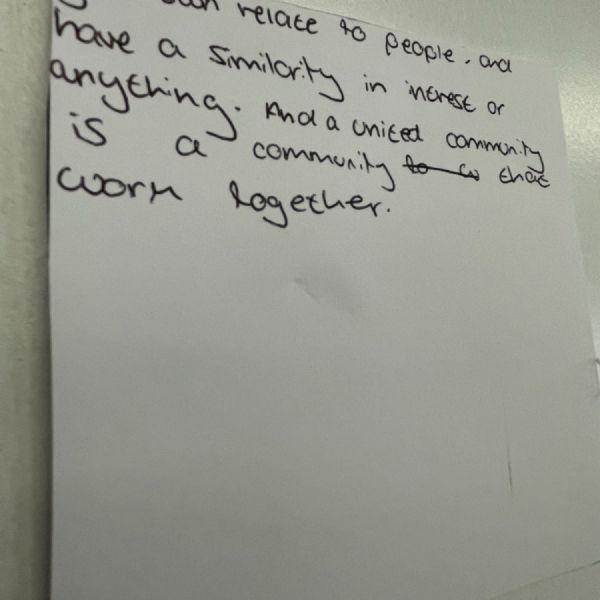 relate to people. and
have a Similority in intrest or
anything. And a united community
is a community that
work together.